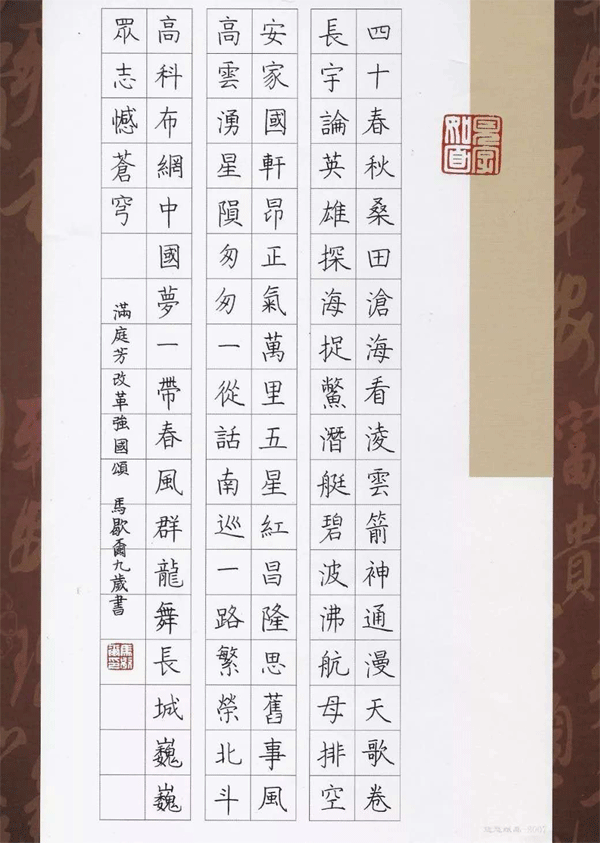 見字如面
四十春秋桑田滄海看淩雲箭神通漫天歌卷
長宇論英雄探海捉鱉潛艇碧波沸航母排空
安家國軒昂正氣萬里五星紅昌隆思舊事風
高雲湧星隕匆匆一從話南巡一路繁榮北斗
高科布網中國夢一帶春風群龍舞長城巍巍
眾志憾蒼穹
滿庭芳改革強國頌 馬歇爾九歲書